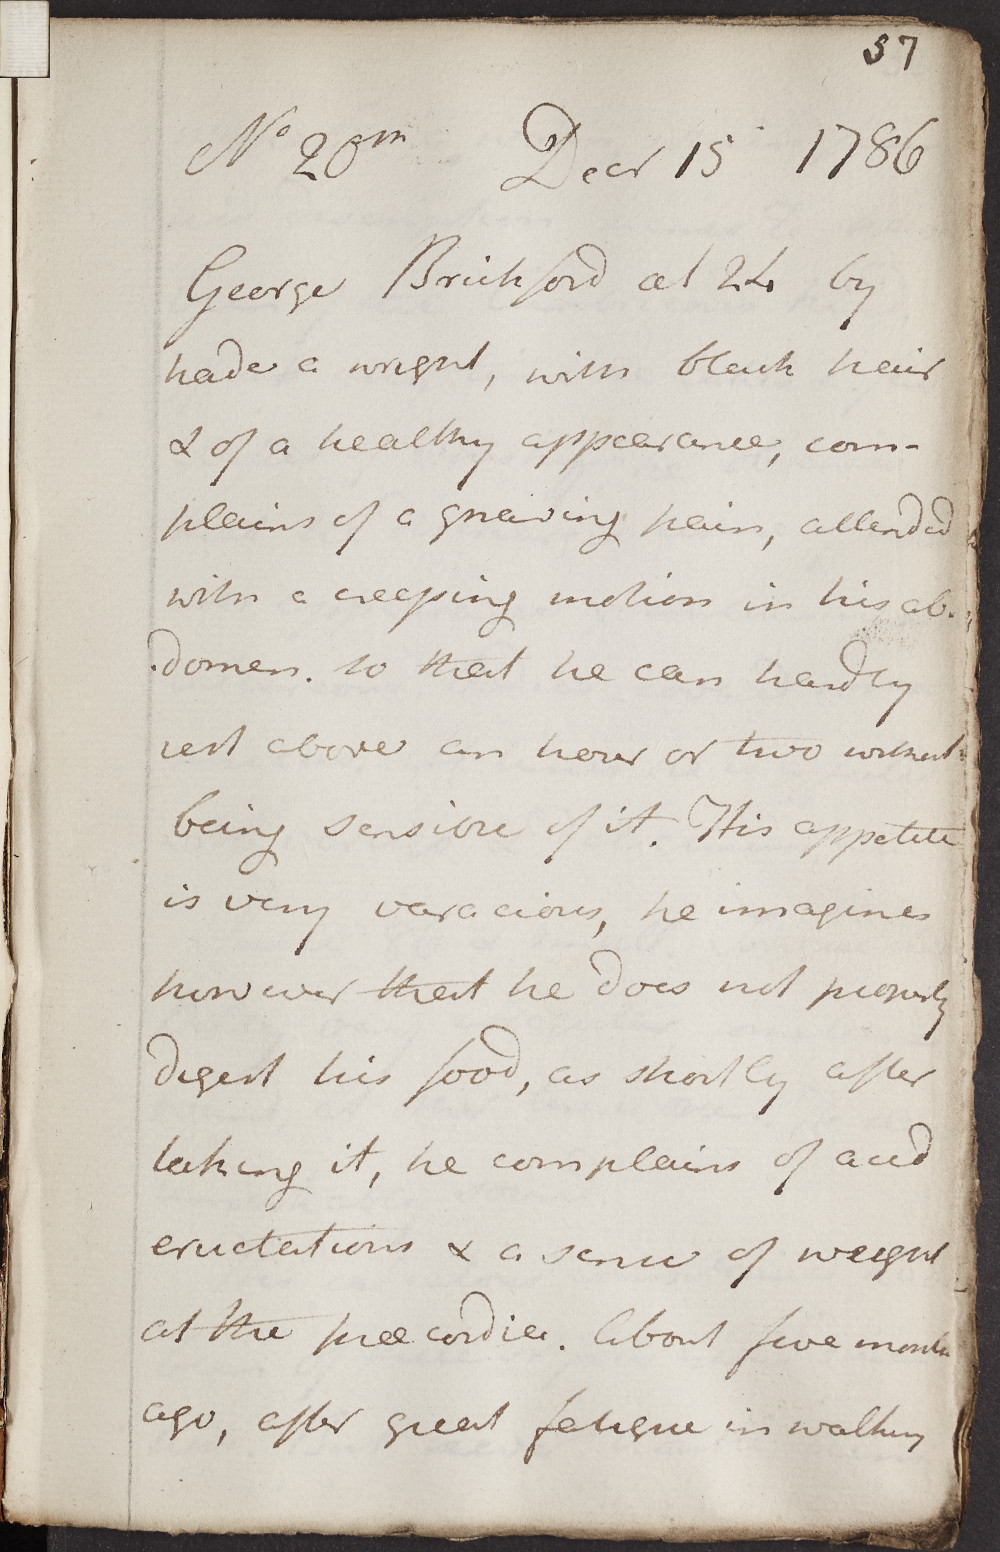 37
No 20m Decr 15 1786
George Brickford æt 24 by
trade a wright, with black hair
& of a healthy appearance, com-
plains of a gnawing pain, attended
with a creeping motion in his ab-
domen. so that he can hardly
rest above an hour or two without
being sensible of it. His appetite
is very varacious, he imagines
however that he does not properly
digest his food, as shortly after
taking it, he complains of acid
eructations & a sense of weight
at the præcordia. About five months
ago, after great fatigue in walking